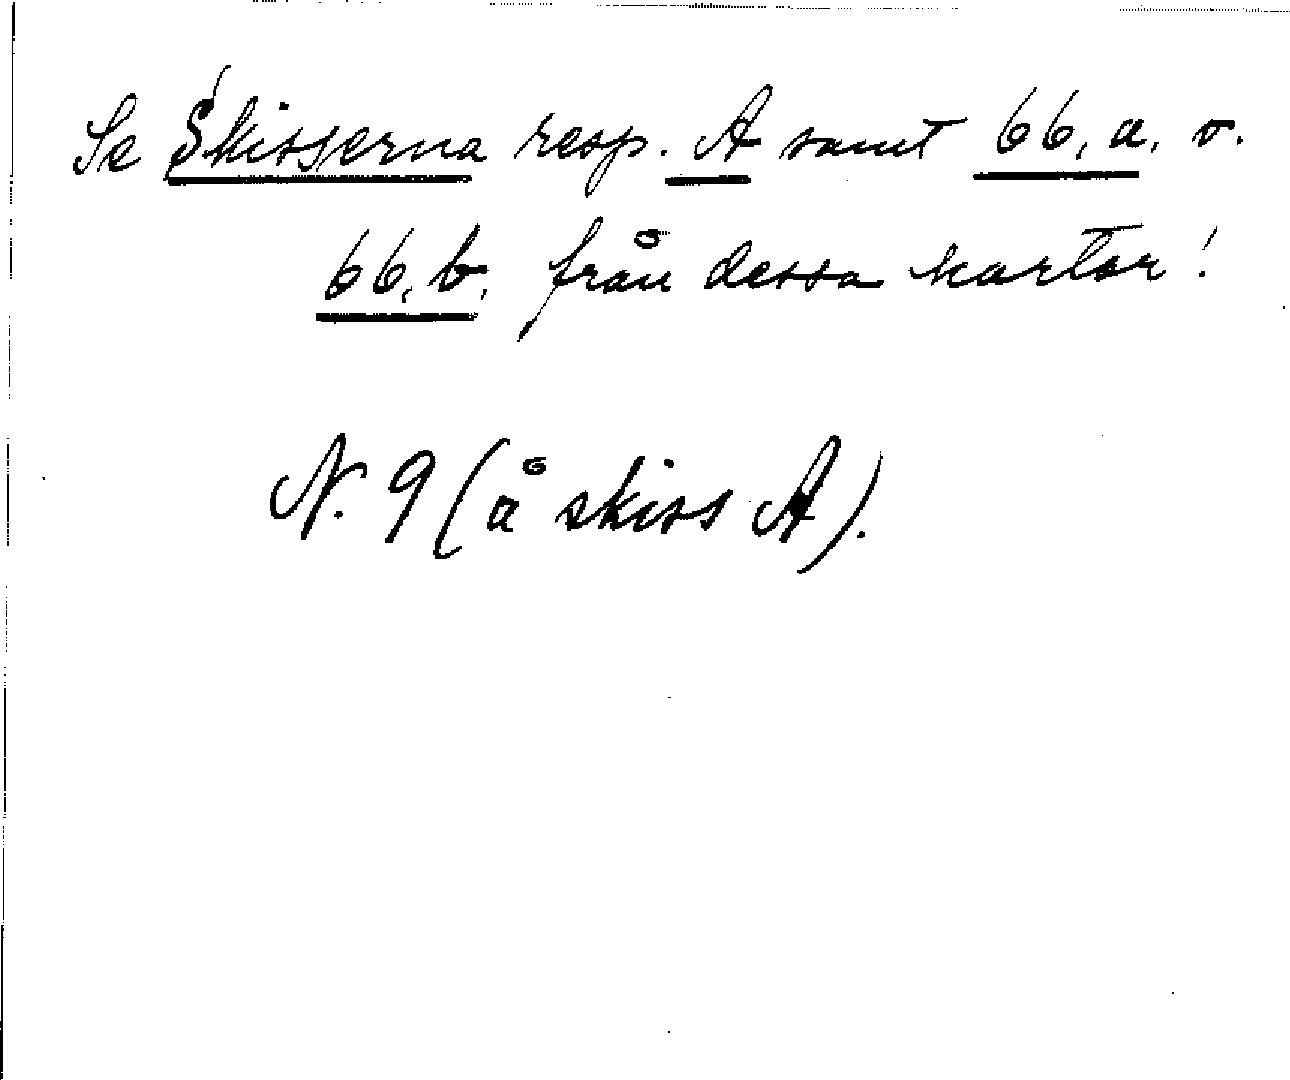 Se Skisserna resp. A samt 66, a. o.
66, b. från dessa kartor!
N. 9 (å skiss A).